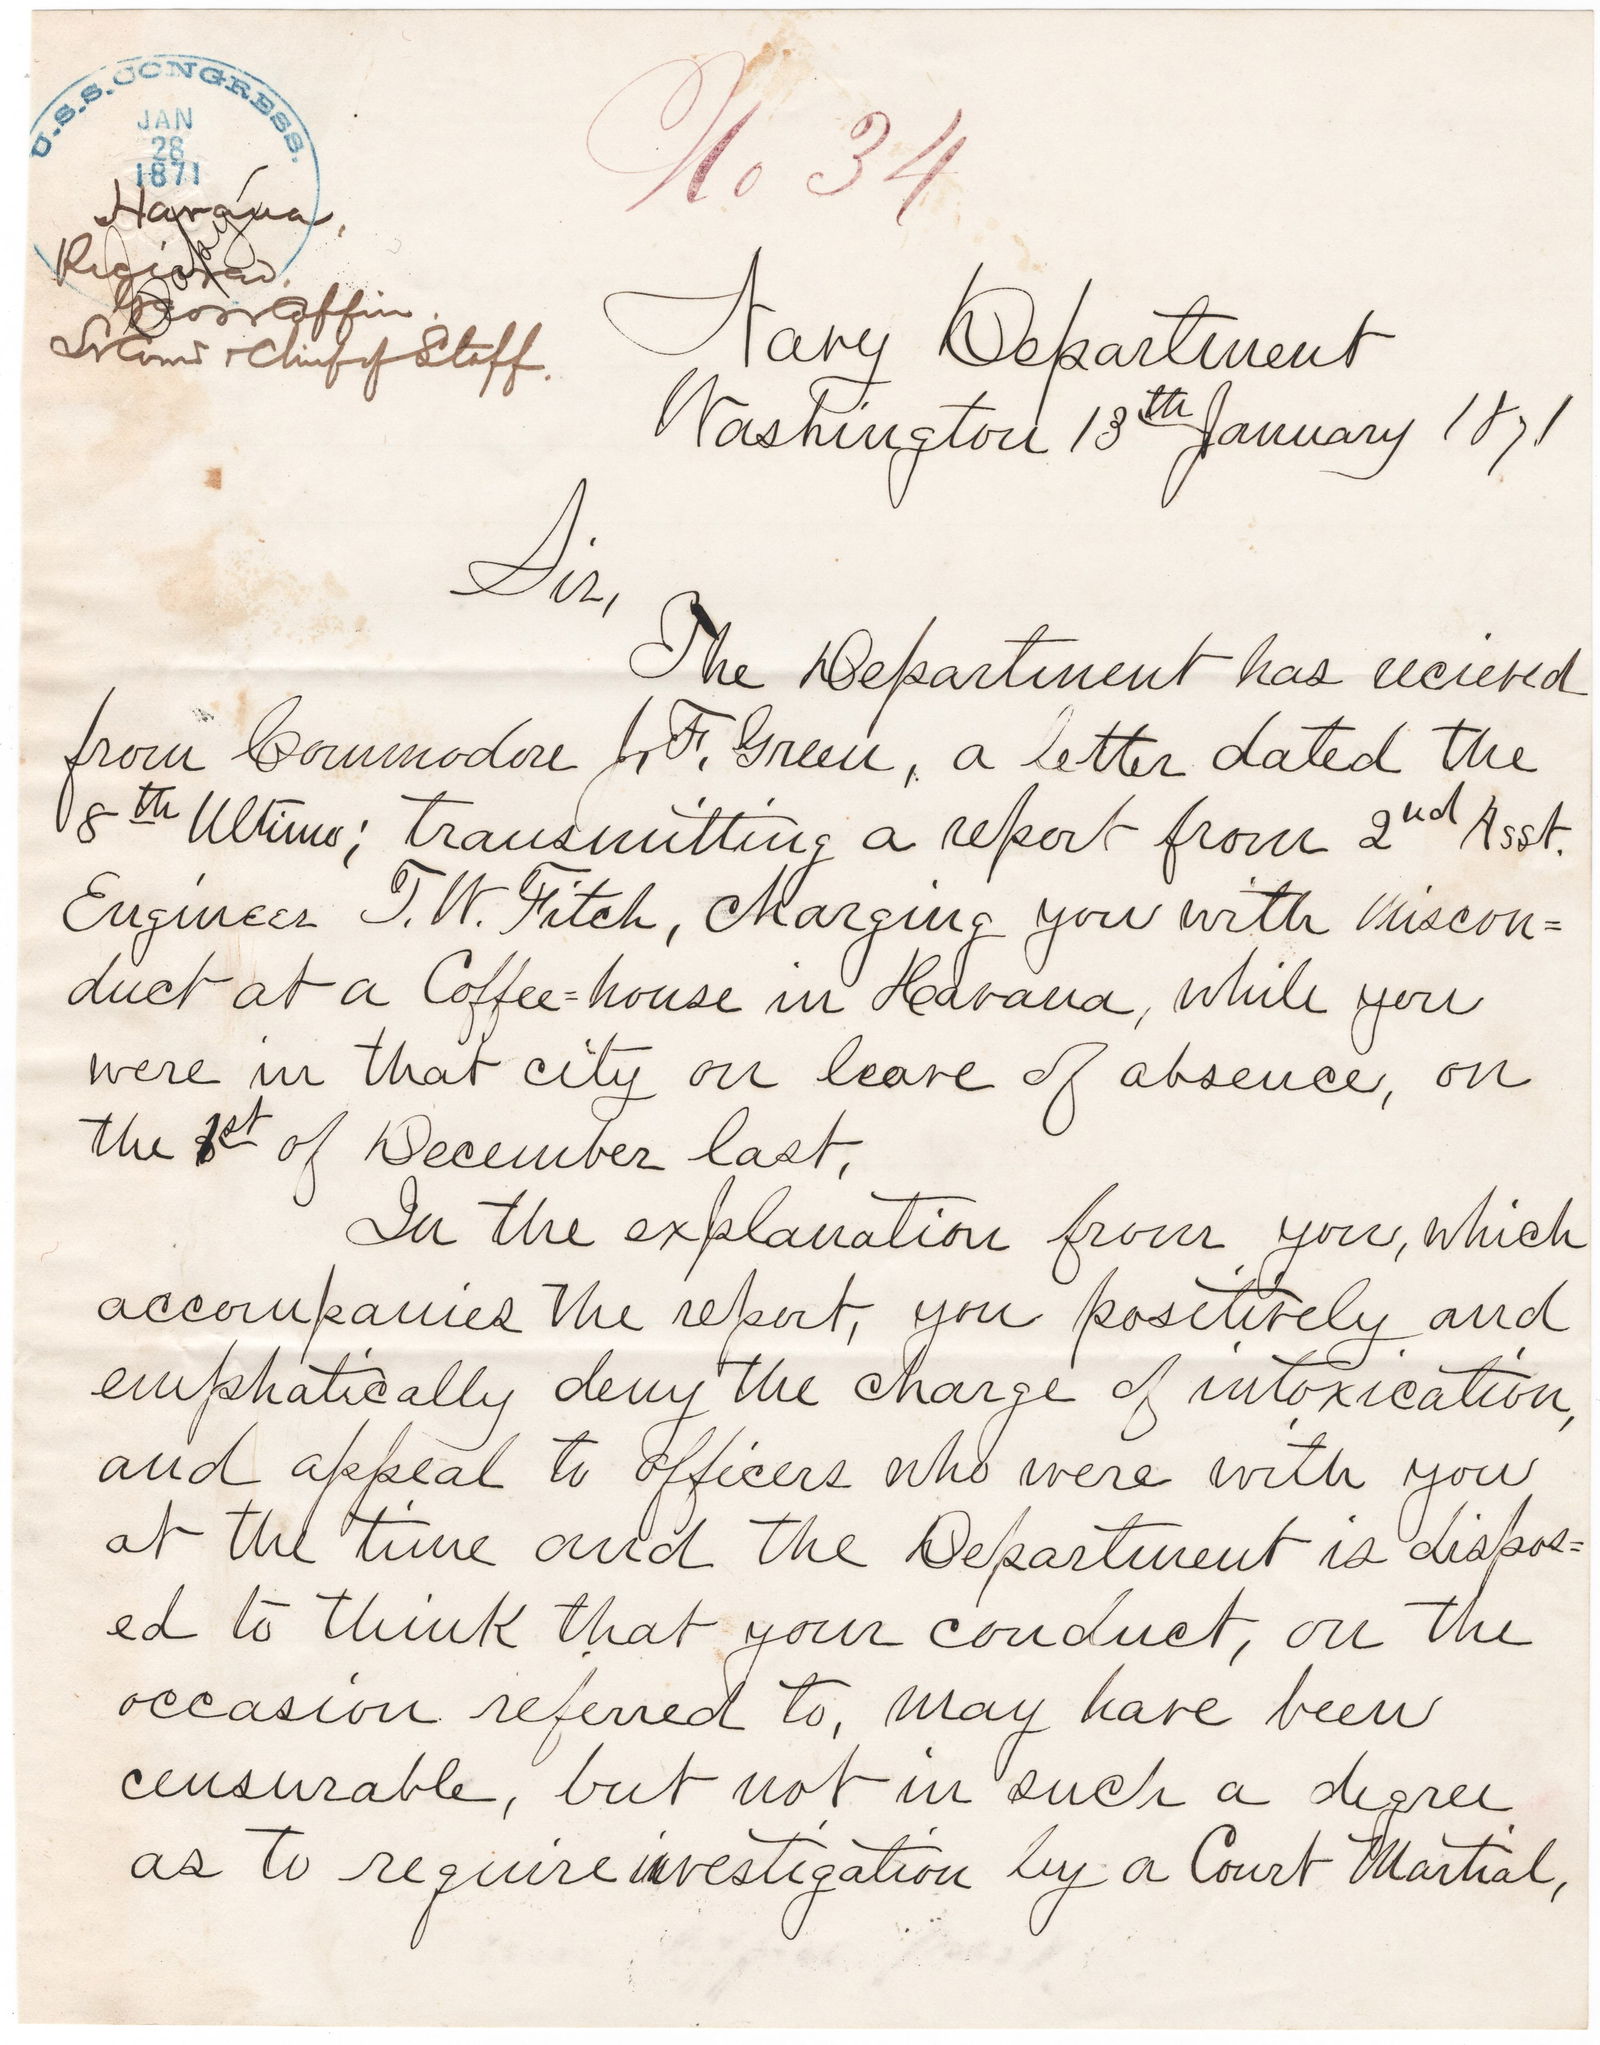 U.S.S. CONGRESS.
JAN
28
1871
No 34
Havana,
Copy
Chief of Staff.
Navy Department
Washington 13th January 1871
Sir,
The Department has recieved
from Commodore J. F. Green, a letter dated the
8th Ultimo; transmitting a report from 2nd Asst.
Engineer T. W. Fitch, charging you with miscon=
duct at a Coffee=house in Havana, while you
were in that city on leave of absence, on
the 1st of December last.
In the explanation from you, which
accompanies the report, you positively and
emphatically deny the charge of intoxication,
and appeal to officers who were with you
at the time and the Department is dispos=
ed to think that your conduct, on the
occasion referred to, may have been
censurable, but not in such a degree
as to require investigation by a Court Martial,